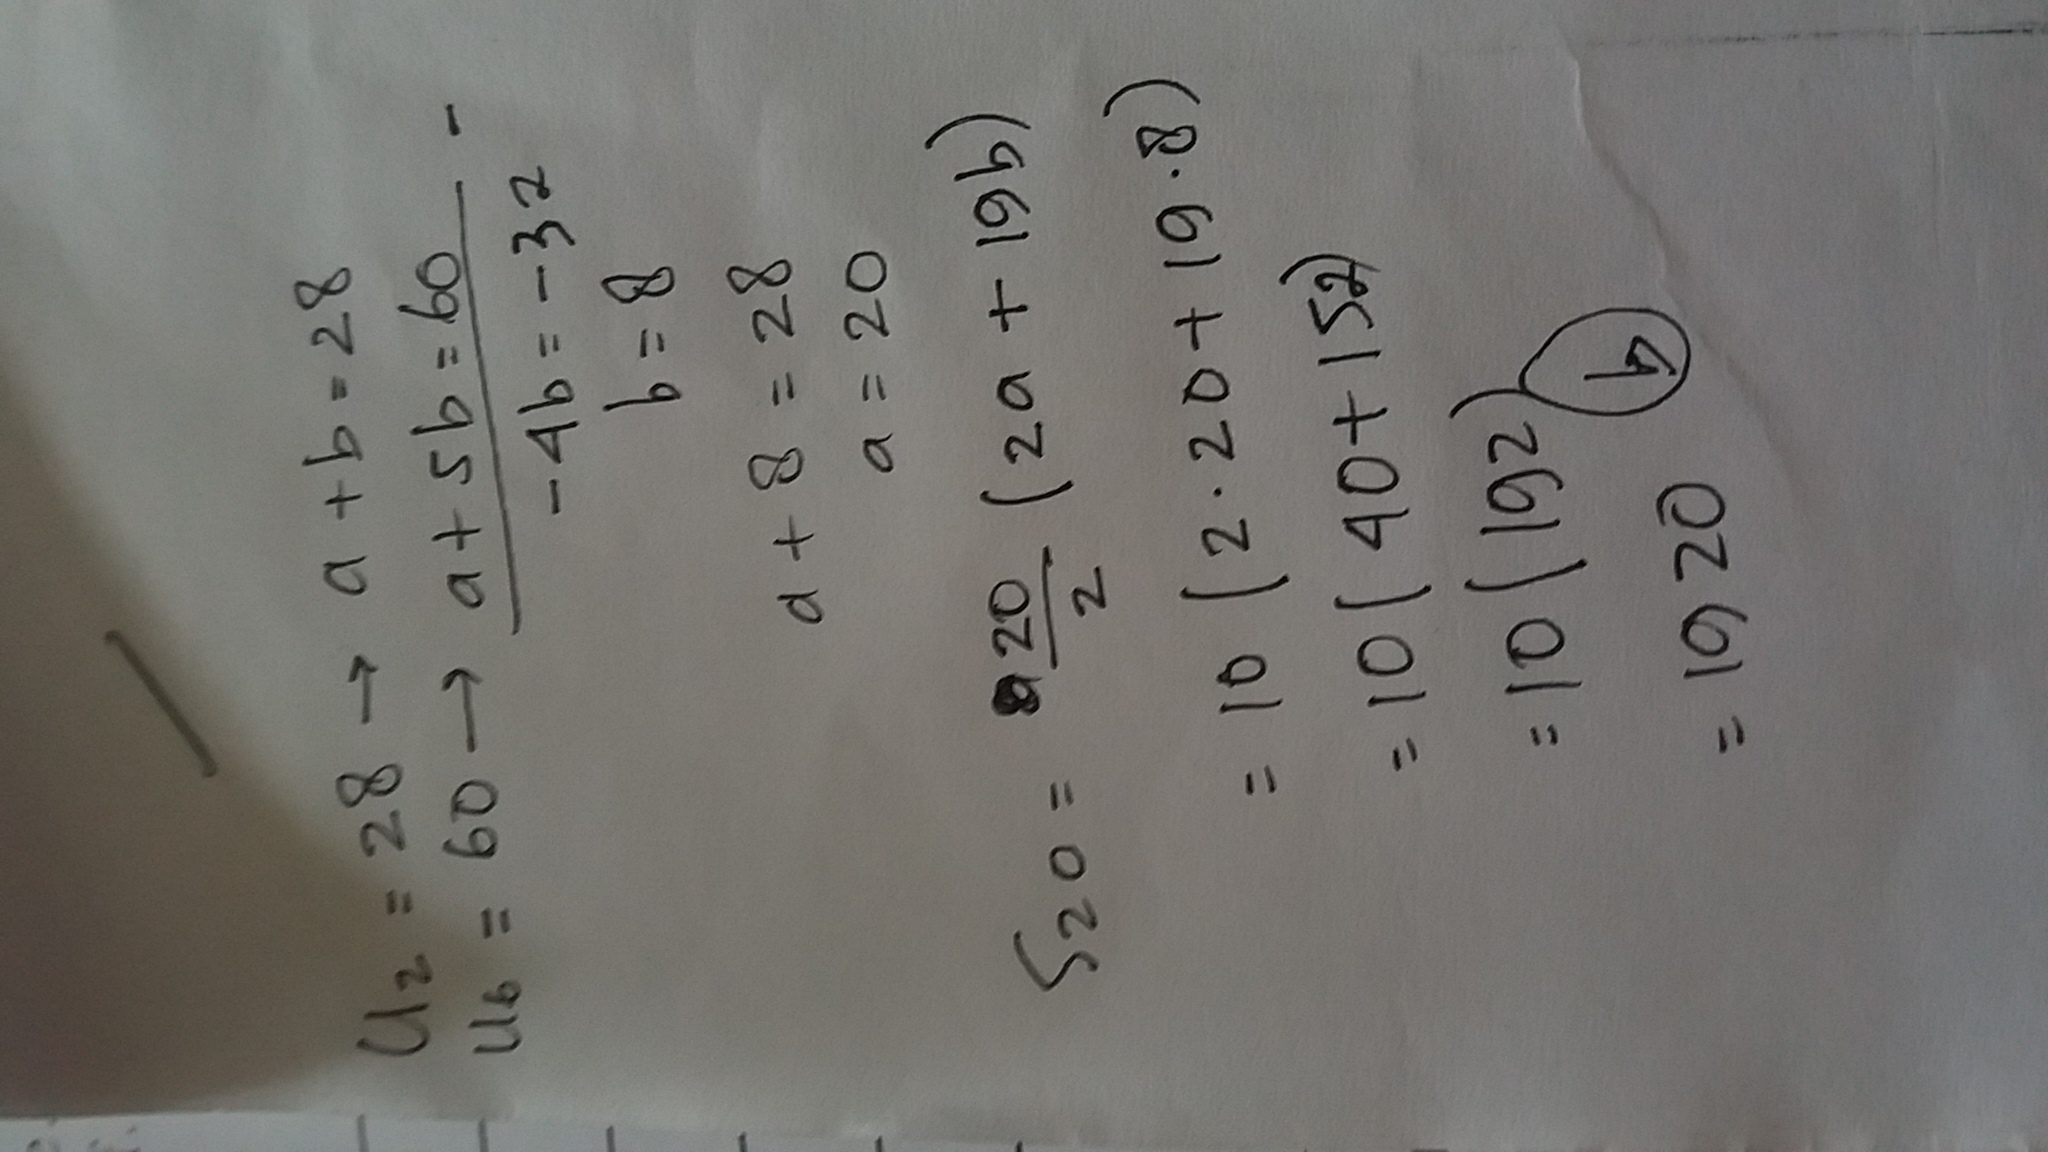 U2 = 28 → a + b = 28
U6 = 60 → a + 5b = 60 -
-4b = -32
b = 8
a + 8 = 28
a = 20
S20 = 20/2 (2a + 19b)
= 10 (2 . 20 + 19 . 8)
= 10 (40 + 152)
= 10 (192)
= 1920 b